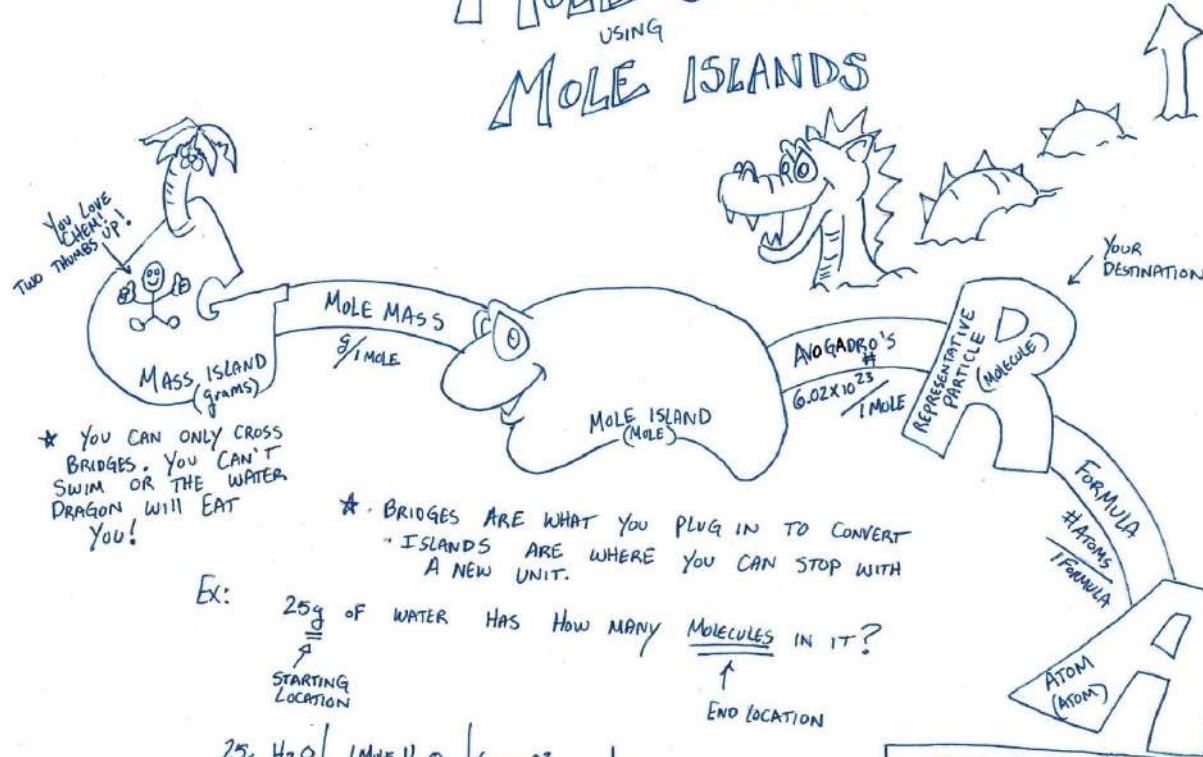 USING
MOLE ISLANDS
YOU LOVE
CHEM!
TWO THUMBS UP!
YOUR
DESTINATION
MOLE MASS
g/1 MOLE
AVOGADRO'S
#
6.02X10²³
/1 MOLE
REPRESENTATIVE
PARTICLE
(MOLECULE)
MASS ISLAND
(grams)
MOLE ISLAND
(MOLE)
FORMULA
#ATOMS
1 FORMULA
ATOM
(ATOM)
* YOU CAN ONLY CROSS
BRIDGES. YOU CAN'T
SWIM OR THE WATER
DRAGON WILL EAT
YOU!
* · BRIDGES ARE WHAT YOU PLUG IN TO CONVERT
· ISLANDS ARE WHERE YOU CAN STOP WITH
A NEW UNIT.
Ex:
25g OF WATER HAS HOW MANY MOLECULES IN IT?
STARTING
LOCATION
END LOCATION